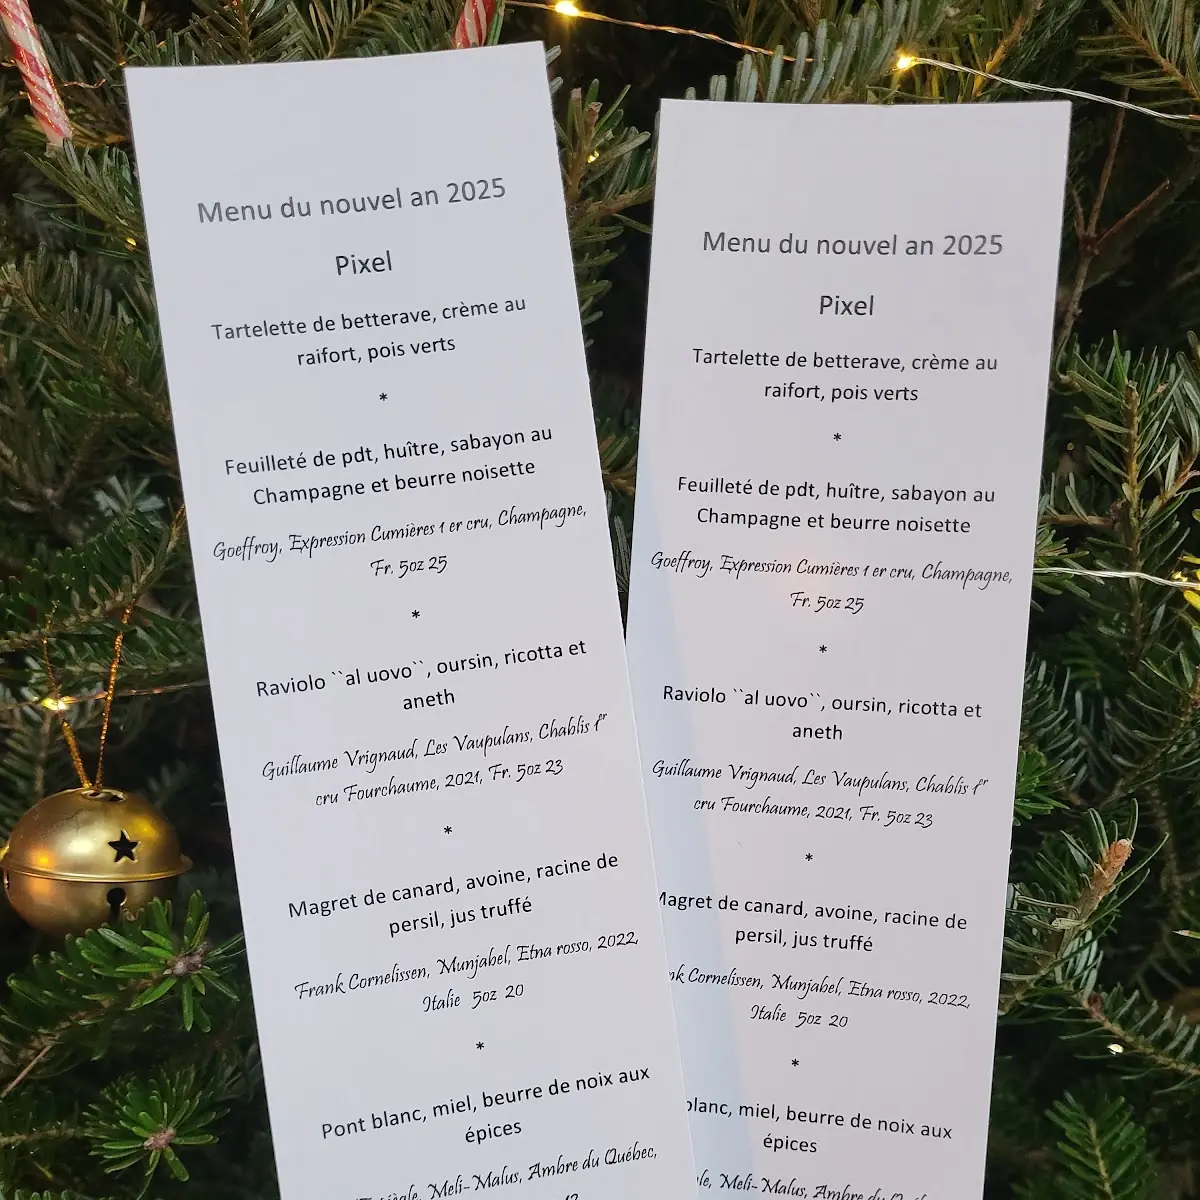 Menu du nouvel an 2025
Pixel
Tartelette de betterave, crème au
raifort, pois verts
*
Feuilleté de pdt, huître, sabayon au
Champagne et beurre noisette
Goeffroy, Expression Cumières 1 er cru, Champagne,
Fr. 5oz 25
*
Raviolo ``al uovo``, oursin, ricotta et
aneth
Guillaume Vrignaud, Les Vaupulans, Chablis 1er
cru Fourchaume, 2021, Fr. 5oz 23
*
Magret de canard, avoine, racine de
persil, jus truffé
Frank Cornelissen, Munjabel, Etna rosso, 2022,
Italie 5oz 20
*
Pont blanc, miel, beurre de noix aux
épices
Meli-Malus, Ambre du Québec,
Menu du nouvel an 2025
Pixel
Tartelette de betterave, crème au
raifort, pois verts
*
Feuilleté de pdt, huître, sabayon au
Champagne et beurre noisette
Goeffroy, Expression Cumières 1 er cru, Champagne,
Fr. 5oz 25
*
Raviolo ``al uovo``, oursin, ricotta et
aneth
Guillaume Vrignaud, Les Vaupulans, Chablis 1er
cru Fourchaume, 2021, Fr. 5oz 23
*
Magret de canard, avoine, racine de
persil, jus truffé
nk Cornelissen, Munjabel, Etna rosso, 2022,
Italie 5oz 20
*
blanc, miel, beurre de noix aux
épices
Meli-Malus, Ambre du